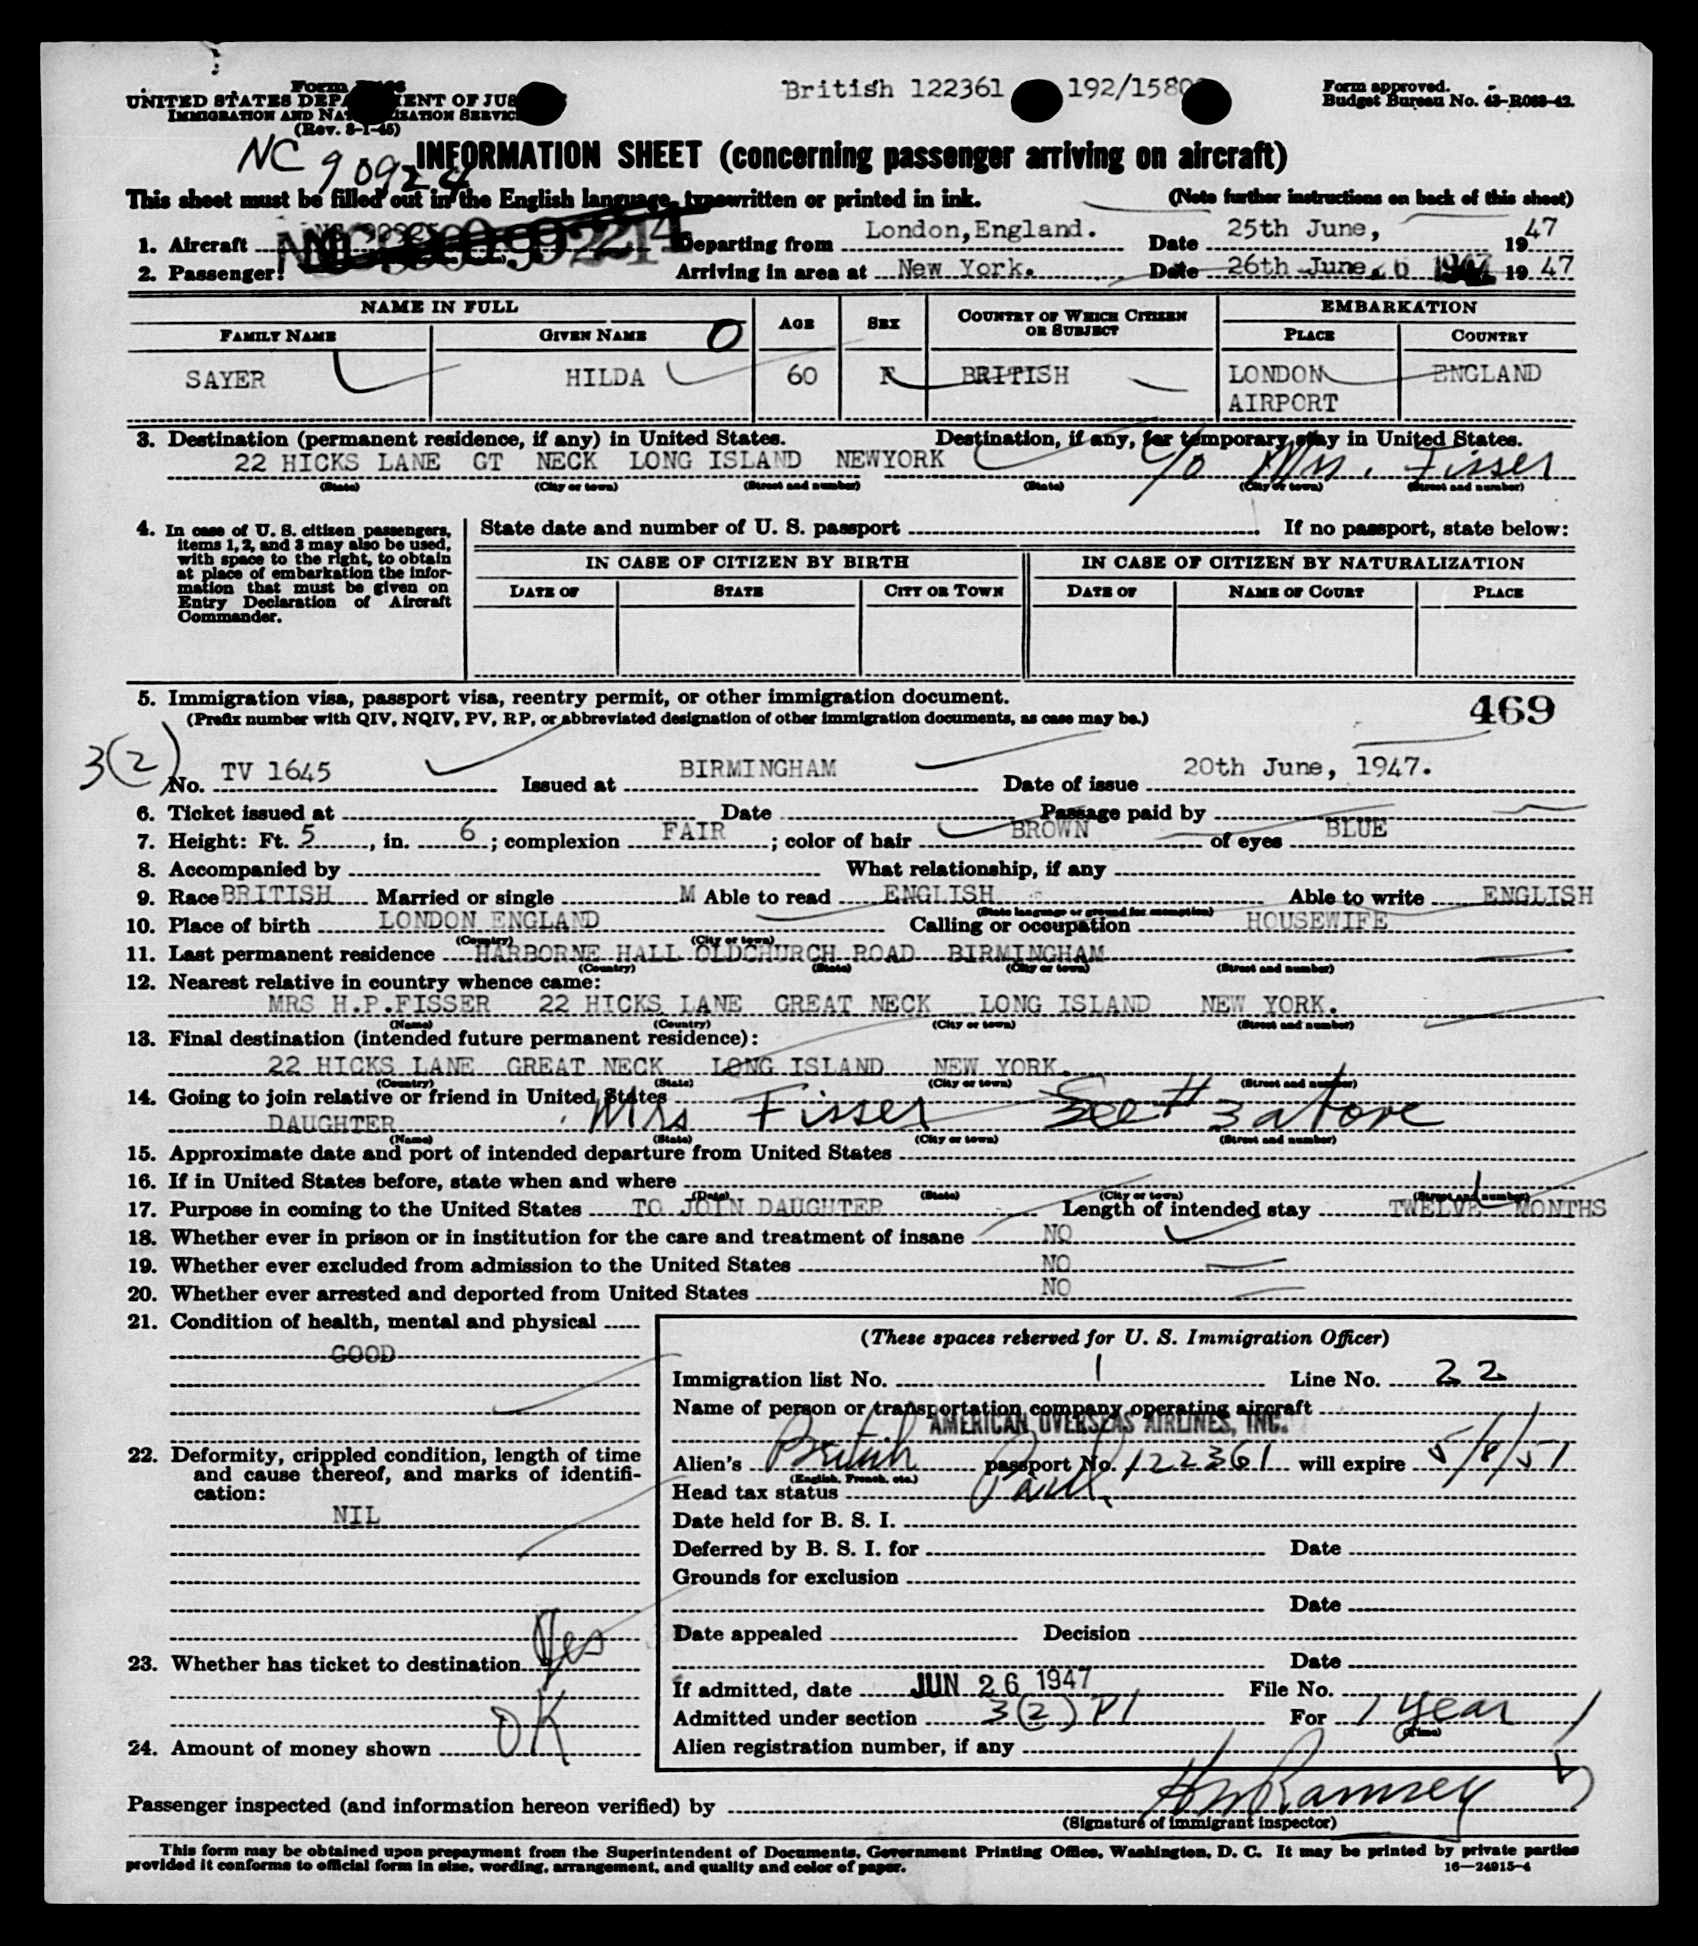 British 122361 192/1580
Form approved.
Budget Bureau No. 43-R083-42.
Form
UNITED STATES
IMMIGRATION AND
(Rev. 8-1-45)
NC 90924
INFORMATION SHEET (concerning passenger arriving on aircraft)
This sheet must be filled out in the English language, typewritten or printed in ink. (Note further instructions on back of this sheet)
1. Aircraft Departing from London, England. Date 25th June, 1947
2. Passenger: Arriving in area at New York. Date 26th June, 1947
NAME IN FULL AGE SEX COUNTRY OF WHICH CITIZEN OR SUBJECT EMBARKATION
FAMILY NAME GIVEN NAME O PLACE COUNTRY
SAYER HILDA 60 F BRITISH LONDON ENGLAND
AIRPORT
3. Destination (permanent residence, if any) in United States. Destination, if any, for temporary stay in United States.
22 HICKS LANE GT NECK LONG ISLAND NEWYORK c/o Mrs. Fisser
(State) (City or town) (Street and number) (State) (City or town) (Street and number)
4. In case of U. S. citizen passengers, items 1, 2, and 3 may also be used, with space to the right, to obtain at place of embarkation the information that must be given on Entry Declaration of Aircraft Commander.
State date and number of U. S. passport If no passport, state below:
IN CASE OF CITIZEN BY BIRTH IN CASE OF CITIZEN BY NATURALIZATION
DATE OF STATE CITY OR TOWN DATE OF NAME OF COURT PLACE
5. Immigration visa, passport visa, reentry permit, or other immigration document. 469
(Prefix number with QIV, NQIV, PV, RP, or abbreviated designation of other immigration documents, as case may be.)
3(2)
No. TV 1645 Issued at BIRMINGHAM Date of issue 20th June, 1947.
6. Ticket issued at Date Passage paid by
7. Height: Ft. 5, in. 6; complexion FAIR; color of hair BROWN of eyes BLUE
8. Accompanied by What relationship, if any
9. Race BRITISH Married or single M Able to read ENGLISH Able to write ENGLISH
(State language or ground for exemption)
10. Place of birth LONDON ENGLAND Calling or occupation HOUSEWIFE
(Country) (City or town)
11. Last permanent residence HARBORNE HALL OLDCHURCH ROAD BIRMINGHAM
(Country) (State) (City or town) (Street and number)
12. Nearest relative in country whence came:
MRS H.P.FISSER 22 HICKS LANE GREAT NECK LONG ISLAND NEW YORK.
(Name) (Country) (City or town) (Street and number)
13. Final destination (intended future permanent residence):
22 HICKS LANE GREAT NECK LONG ISLAND NEW YORK.
(Country) (State) (City or town) (Street and number)
14. Going to join relative or friend in United States
DAUGHTER Mrs Fisser See # 3 above
(Name) (State) (City or town) (Street and number)
15. Approximate date and port of intended departure from United States
16. If in United States before, state when and where
(Date) (State) (City or town) (Street and number)
17. Purpose in coming to the United States TO JOIN DAUGHTER Length of intended stay TWELVE MONTHS
18. Whether ever in prison or in institution for the care and treatment of insane NO
19. Whether ever excluded from admission to the United States NO
20. Whether ever arrested and deported from United States NO
21. Condition of health, mental and physical
GOOD
22. Deformity, crippled condition, length of time
and cause thereof, and marks of identifi-
cation:
NIL
23. Whether has ticket to destination Yes
24. Amount of money shown OK
(These spaces reserved for U. S. Immigration Officer)
Immigration list No. 1 Line No. 22
Name of person or transportation company operating aircraft
AMERICAN OVERSEAS AIRLINES, INC.
Alien's British passport No. 122361 will expire 5/8/51
(English, French, etc.)
Head tax status Paid.
Date held for B. S. I.
Deferred by B. S. I. for Date
Grounds for exclusion
Date
Date appealed Decision
Date
If admitted, date JUN 26 1947 File No.
Admitted under section 3(2) P1 For 1 year
(Time)
Alien registration number, if any
Passenger inspected (and information hereon verified) by HW Ramsey
(Signature of immigrant inspector)
This form may be obtained upon prepayment from the Superintendent of Documents, Government Printing Office, Washington, D. C. It may be printed by private parties
provided it conforms to official form in size, wording, arrangement, and quality and color of paper. 16—24915-4